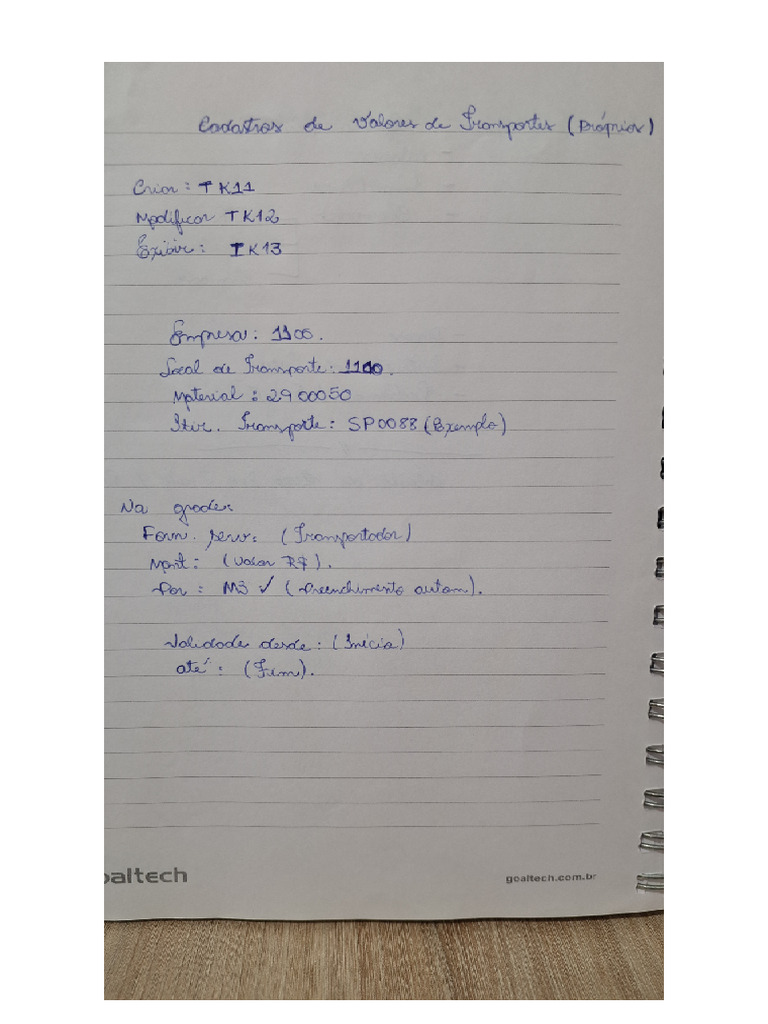 Cadastros de Valores de Transportes (Próprios)
Criar: TK11
Modificar TK12
Exibir: TK13
Empresa: 1100.
Local de Transporte: 1100.
Material: 2900050
Itir. Transporte: SP0088 (Exemplo)
Na grade:
Forn. serv: (Transportador)
Mont: (Valor R$).
Por: M3 ✓ (Preenchimento autom).
Validade desde: (Início)
até: (Fim).
oaltech
goaltech.com.br